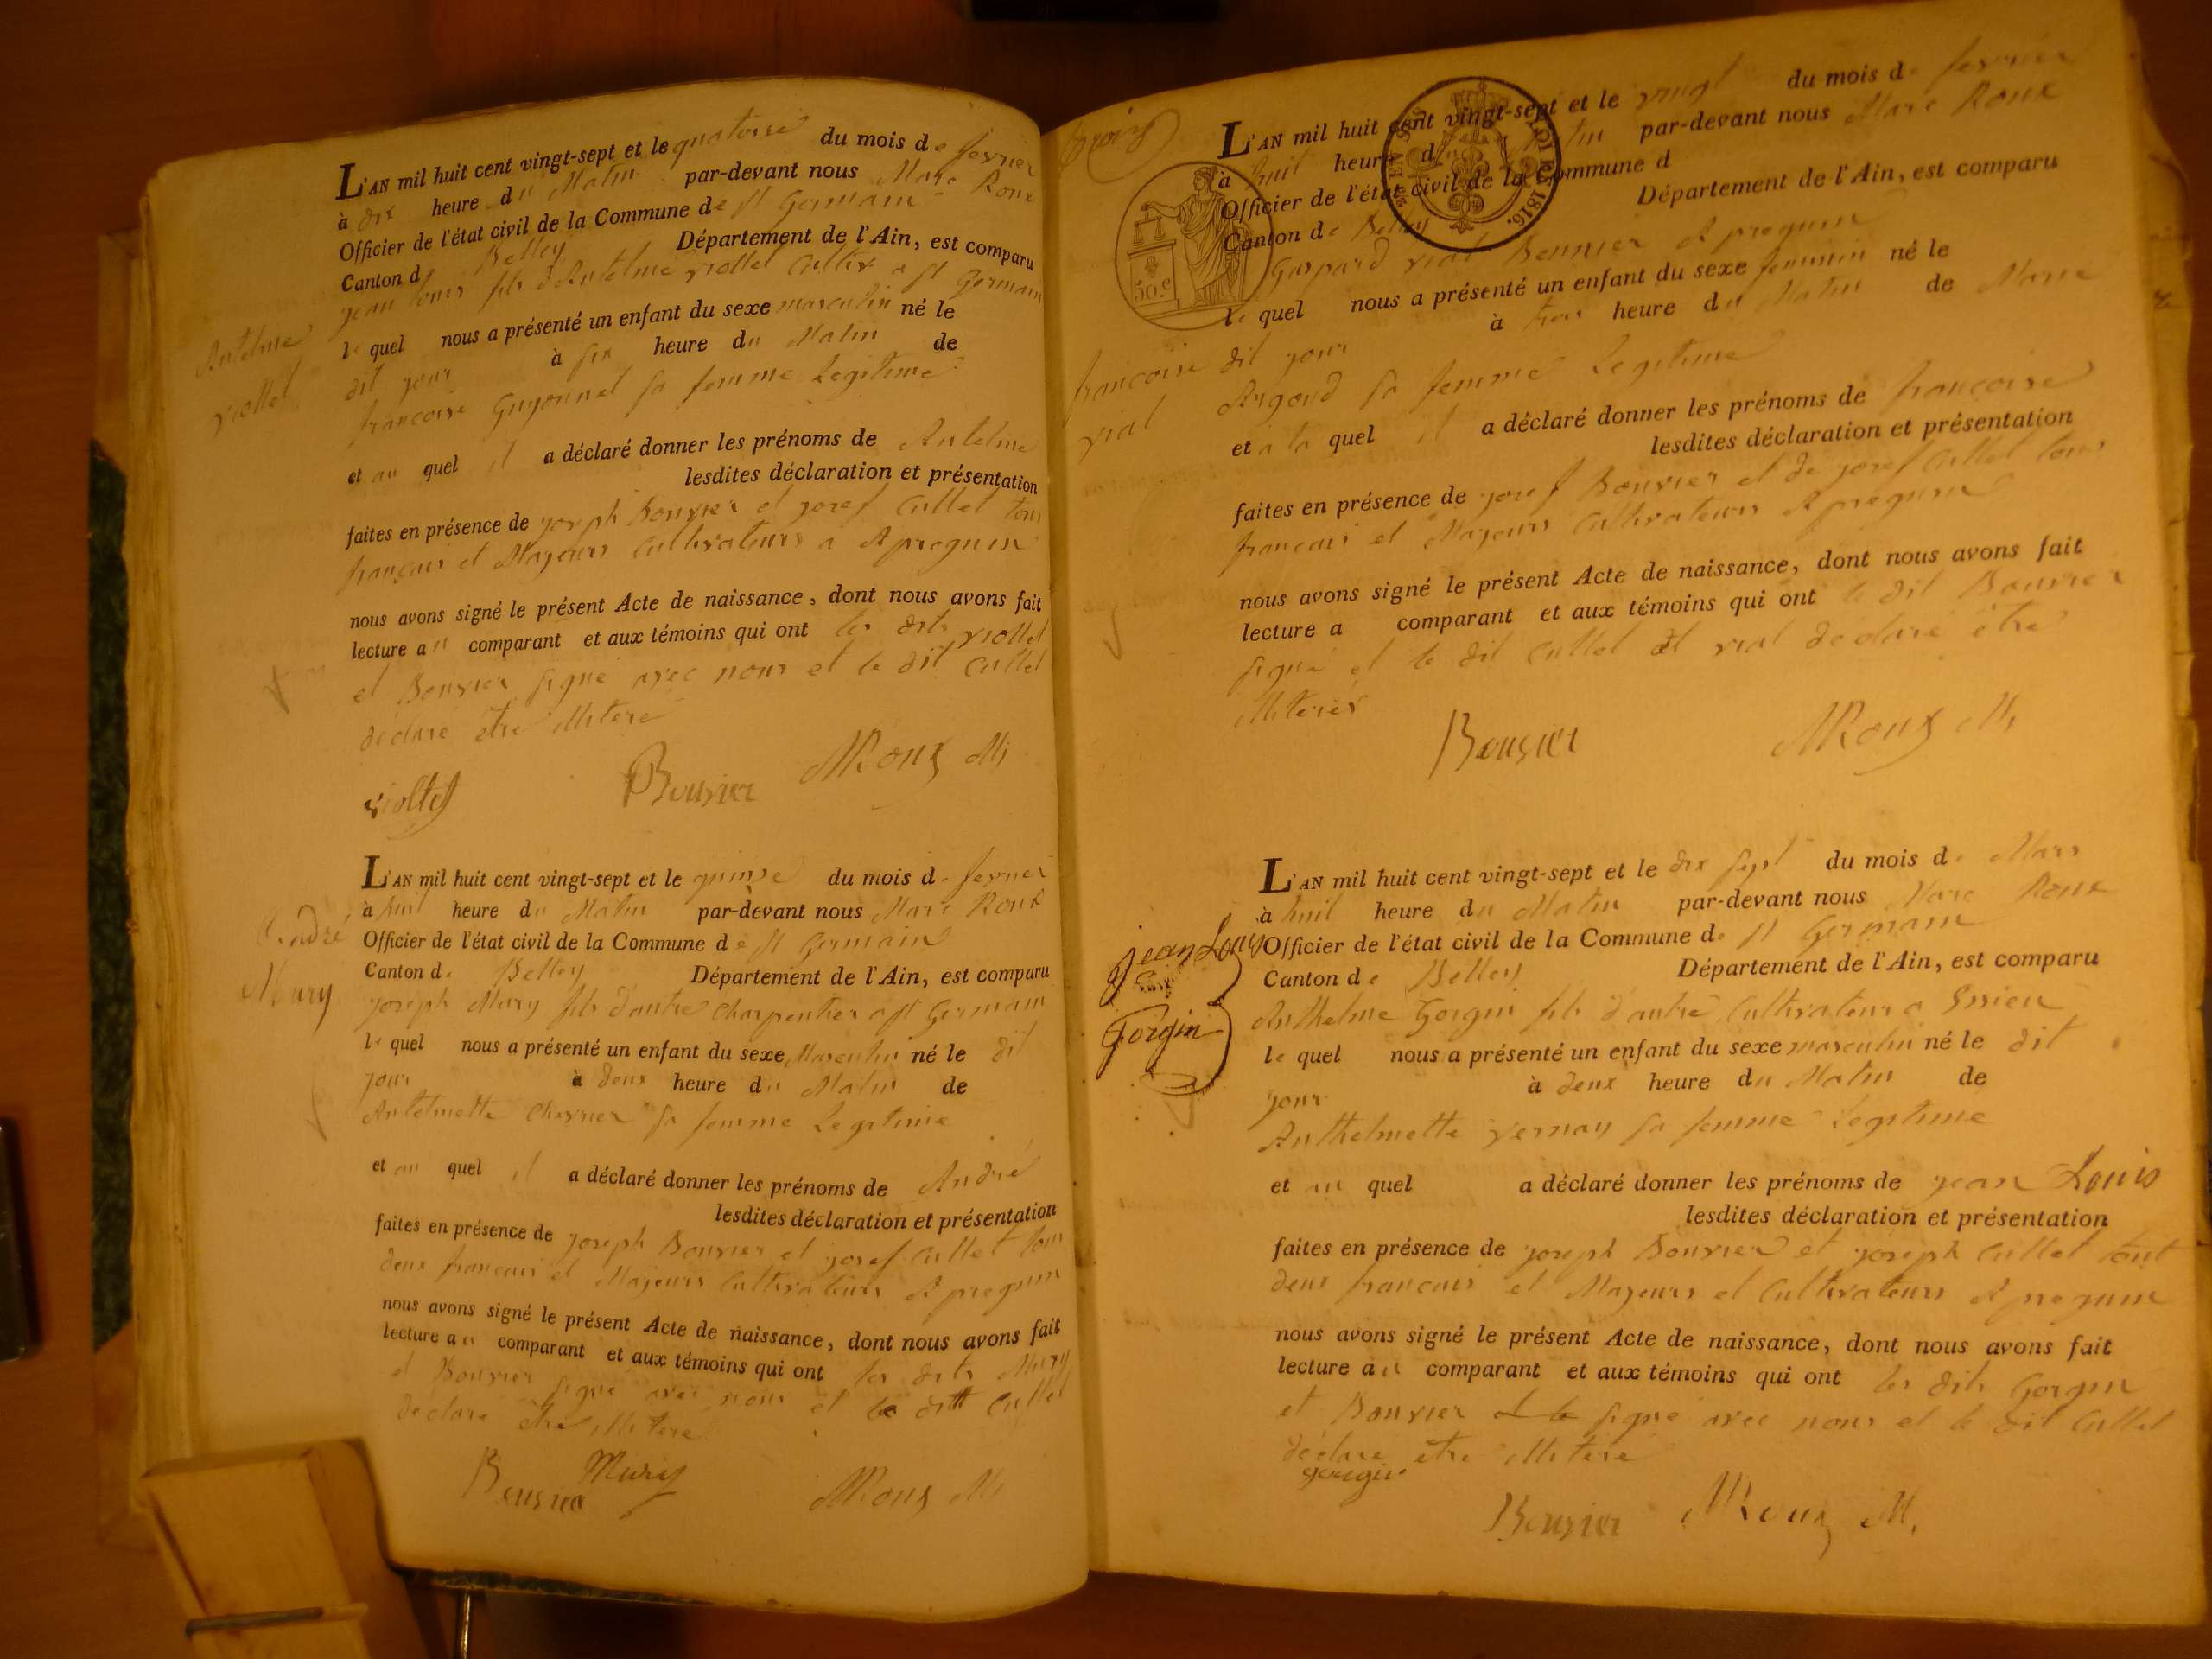 L'AN mil huit cent vingt-sept et le quatorse du mois de fevrier
à dix heure du Matin par-devant nous Marc Roux
Officier de l'état civil de la Commune de St Germain
Canton d Belley Département de l'Ain, est comparu
jean louis fils d'Antelme viollet Cultivr a St Germain
le quel nous a présenté un enfant du sexe masculin né le
dit jour à six heure du Matin de
francoise Guyonnet sa femme Legitime
Antelme
viollet
et au quel il a déclaré donner les prénoms de Antelme
lesdites déclaration et présentation
faites en présence de joseph Bouvier et josef Cullet tous
français et Majeurs Cultivateurs a Apregnin
nous avons signé le présent Acte de naissance, dont nous avons fait
lecture au comparant et aux témoins qui ont les dits viollet
et Bouvier signé avec nous et le dit Cullet
déclaré être illiteré
viollet Bouvier MRoux M
L'AN mil huit cent vingt-sept et le quinse du mois de fevrier
à huit heure du Matin par-devant nous Marc Roux
Officier de l'état civil de la Commune de St Germain
Canton de Belley Département de l'Ain, est comparu
joseph Mury fils d'autre Charpentier a St Germain
le quel nous a présenté un enfant du sexe Masculin né le dit
jour à deux heure du Matin de
Antelmette Chervier sa femme Legitime
André
Mury
et au quel il a déclaré donner les prénoms de André
lesdites déclaration et présentation
faites en présence de joseph Bouvier et josef Cullet tous
deux francais et Majeurs Cultivateurs A pregnin
nous avons signé le présent Acte de naissance, dont nous avons fait
lecture au comparant et aux témoins qui ont les dits Mury
et Bouvier signé avec nous et le dit Cullet
déclaré être illiteré
Bouvier Mury MRoux M
L'AN mil huit cent vingt-sept et le vingt du mois de fevrier
à huit heure du Matin par-devant nous Marc Roux
Officier de l'état civil de la Commune d
Canton de Belley Département de l'Ain, est comparu
Gaspard vial A pregnin
le quel nous a présenté un enfant du sexe feminin né le
dit jour à trois heure du Matin de Marie
Argoud sa femme Legitime
50 c
LOI DE 1816.
francoise
vial
et a la quel il a déclaré donner les prénoms de francoise
lesdites déclaration et présentation
faites en présence de josef Bouvier et de josef Cullet tous
francais et Majeurs Cultivateurs A pregnin
nous avons signé le présent Acte de naissance, dont nous avons fait
lecture a comparant et aux témoins qui ont le dit Bouvier
signé et le dit Cullet et vial declaré être
illiterés
Bouvier MRoux M
L'AN mil huit cent vingt-sept et le dix sept du mois de Mars
à huit heure du Matin par-devant nous Marc Roux
Officier de l'état civil de la Commune de St Germain
Canton de Belley Département de l'Ain, est comparu
Anthelme Gorgin fils d'autre Cultivateur a Essieu
le quel nous a présenté un enfant du sexe masculin né le dit
jour à deux heure du Matin de
Anthelmette vernay sa femme Legitime
jean Louis
Gorgin
et au quel a déclaré donner les prénoms de jean Louis
lesdites déclaration et présentation
faites en présence de joseph Bouvier et joseph Cullet tout
deux francais et Majeurs et Cultivateurs A pregnin
nous avons signé le présent Acte de naissance, dont nous avons fait
lecture au comparant et aux témoins qui ont les dits Gorgin
et Bouvier et le signé avec nous et le dit Cullet
déclaré être illiteré
gorgin
Bouvier MRoux M.